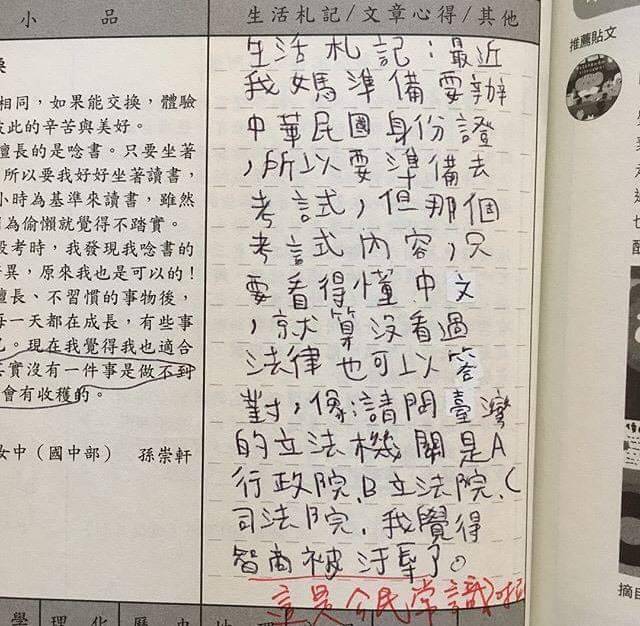 小 品
生活札記/文章心得/其他
推薦貼文
相同，如果能交換，體驗
彼此的辛苦與美好。
擅長的是唸書。只要坐著
所以要我好好坐著讀書，
小時為基準來讀書，雖然
因為偷懶就覺得不踏實。
段考時，我發現我唸書的
異，原來我也是可以的！
擅長、不習慣的事物後，
每一天都在成長，有些事
。現在我覺得我也適合
其實沒有一件事是做不到
會有收穫的。
女中（國中部） 孫崇軒
生活札記：最近
我媽準備要辦
中華民國身份證
，所以要準備去
考試，但那個
考試內容，只
要看得懂中文
，就算沒看過
法律也可以答
對，像：請問臺灣
的立法機關是A
行政院、B立法院、C
司法院，我覺得
智商被汙辱了。
這是公民常識啦
學 理化 歷史 地
摘自